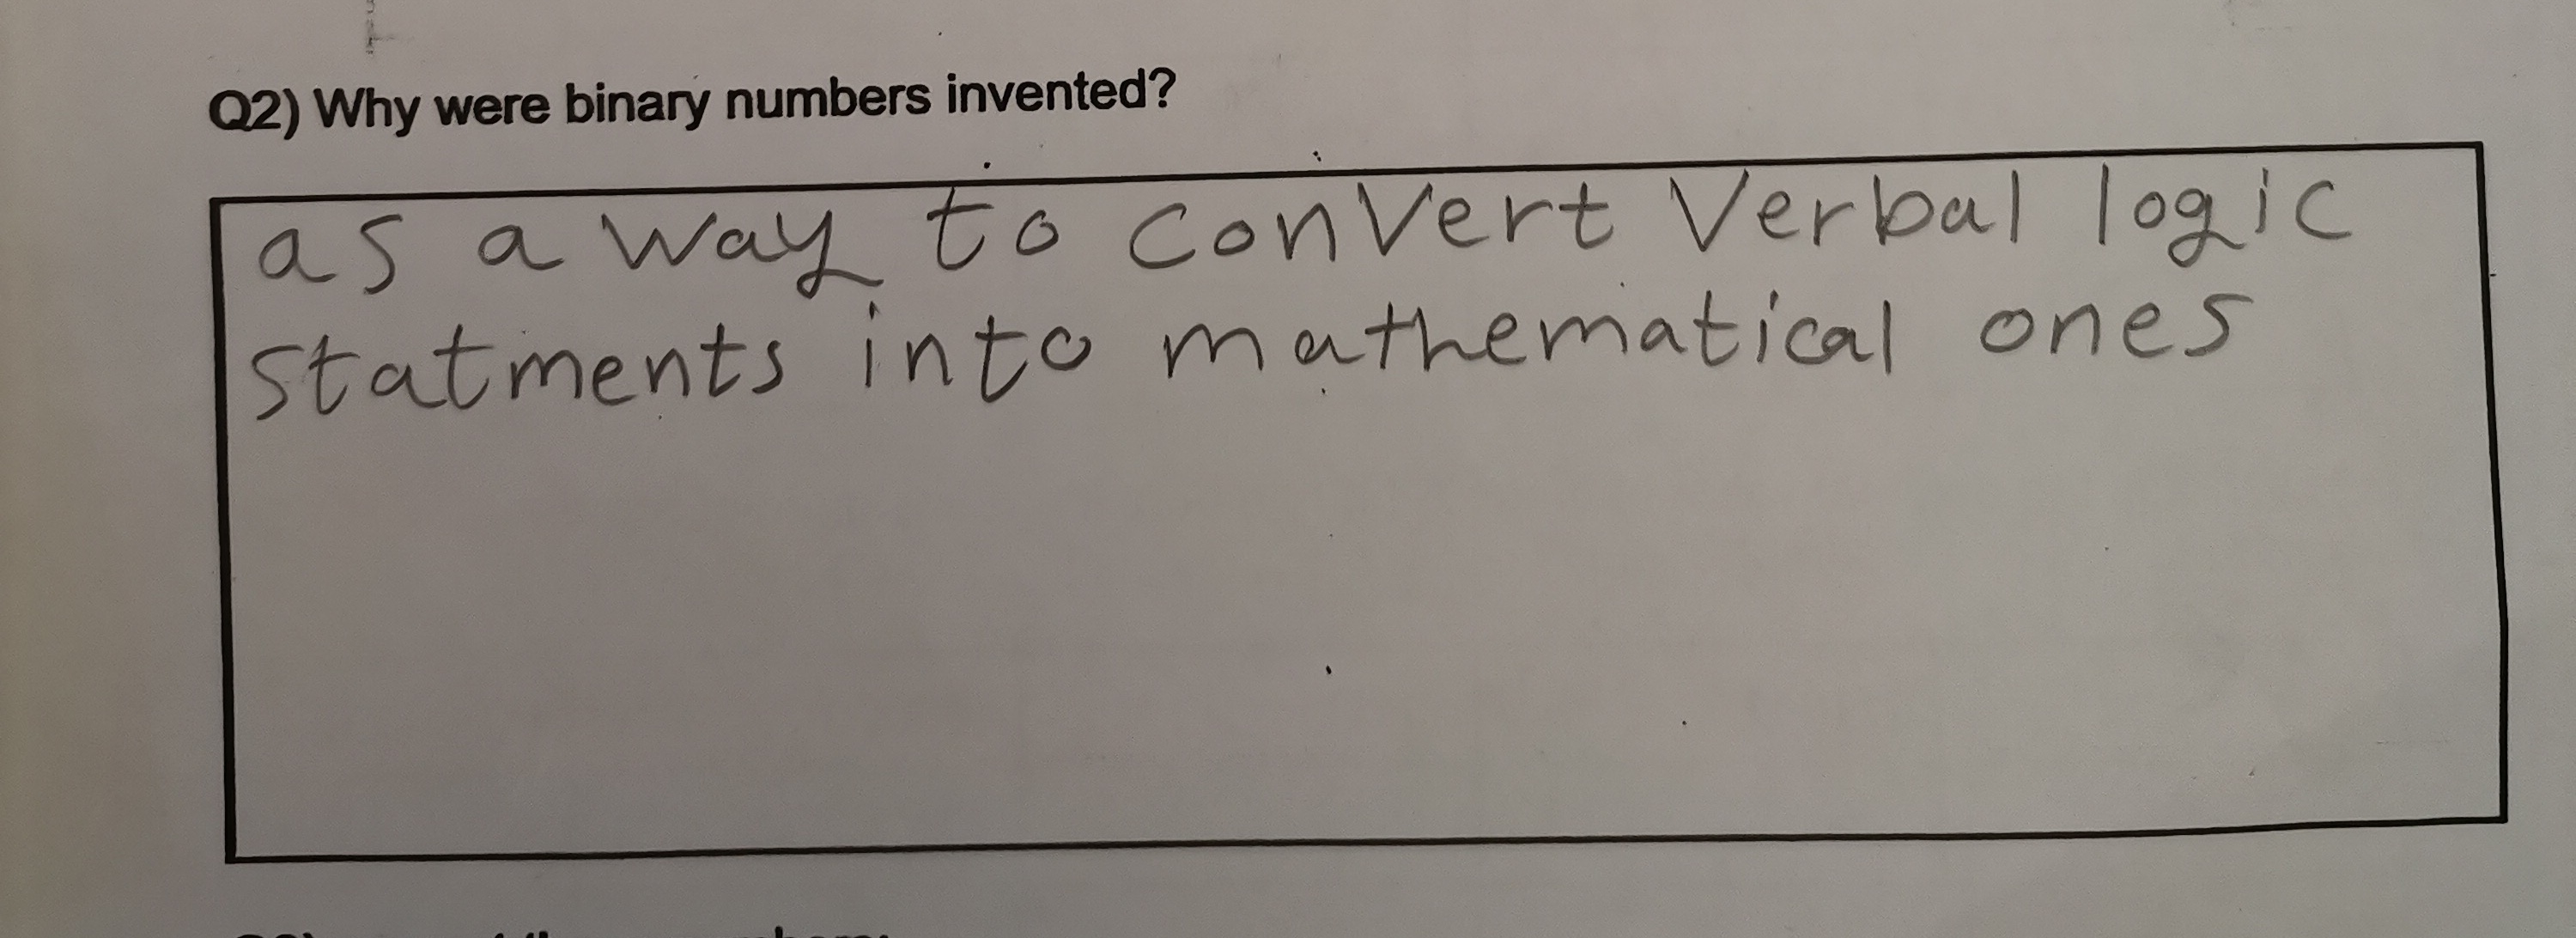 Q2) Why were binary numbers invented?
as a way to convert verbal logic
statments into mathematical ones